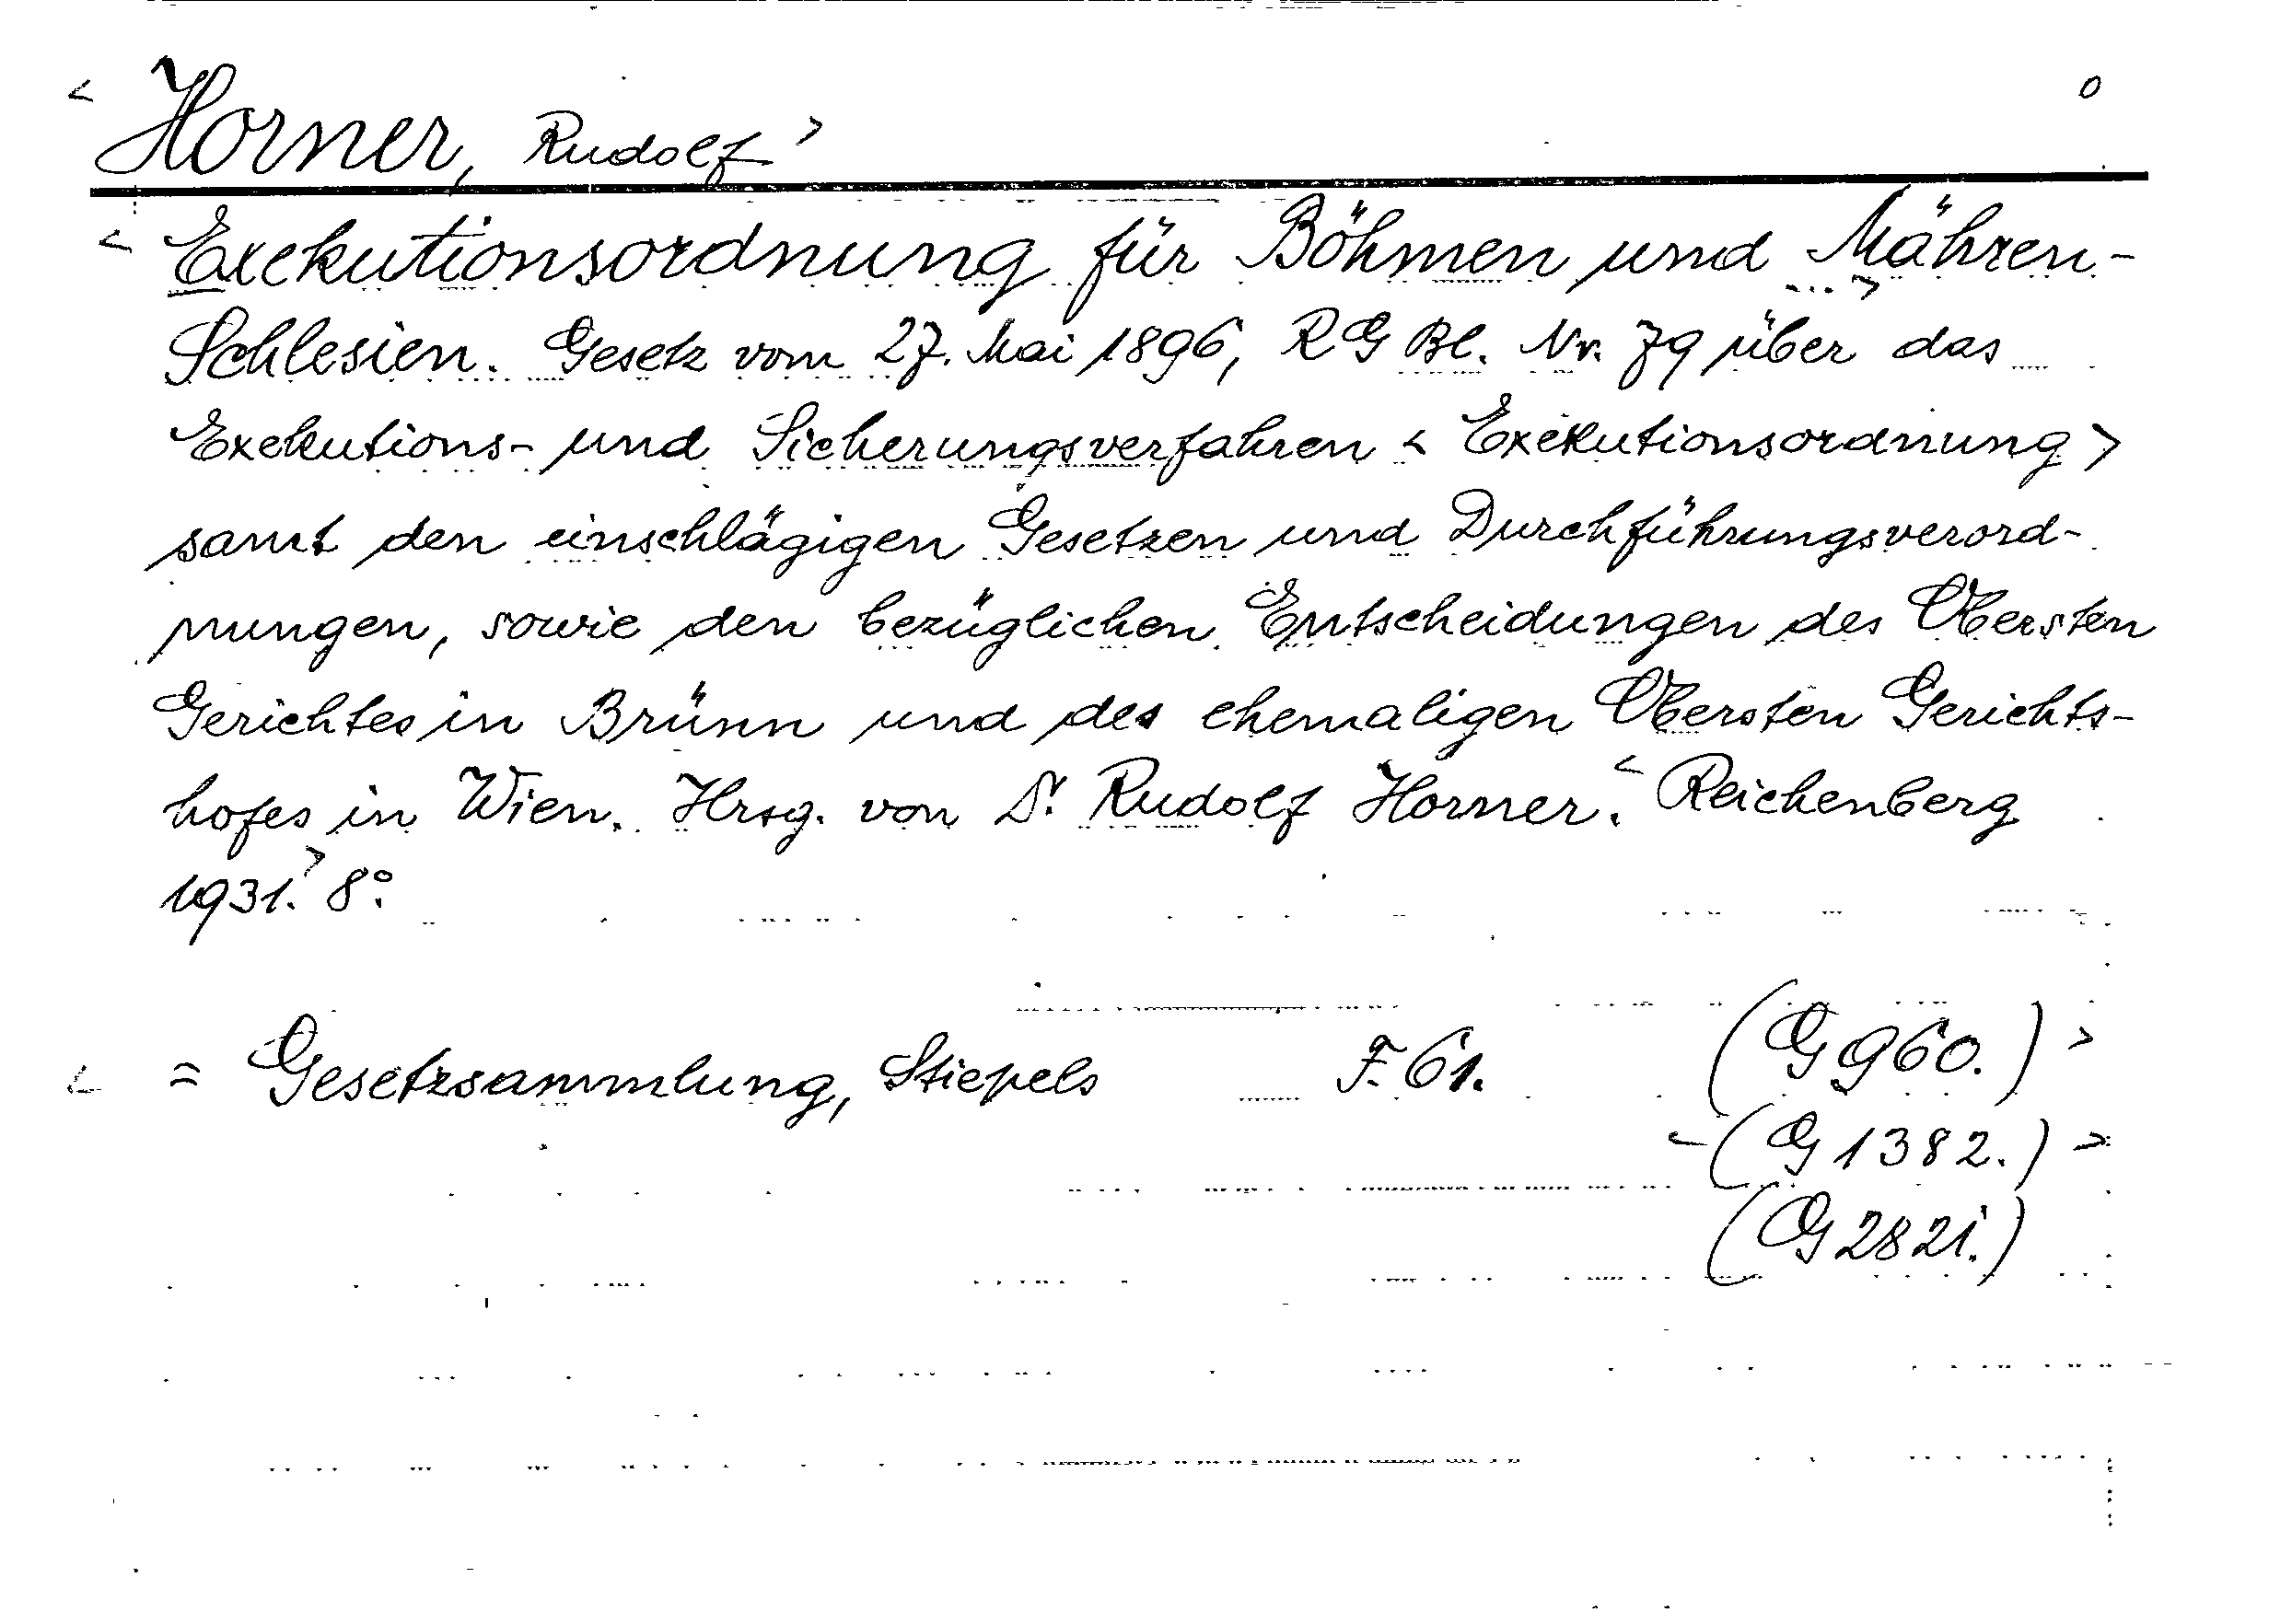 < Horner, Rudolf > 0
< Exekutionsordnung für Böhmen und Mähren-
Schlesien. Gesetz vom 27. Mai 1896, RG Bl. Nr. 79 über das
Exekutions- und Sicherungsverfahren < Exekutionsordnung >
samt den einschlägigen Gesetzen und Durchführungsverord-
nungen, sowie den bezüglichen Entscheidungen des Obersten
Gerichtes in Brünn und des ehemaligen Obersten Gerichts-
hofes in Wien. Hrsg. von Dr. Rudolf Horner. < Reichenberg
1931. > 8°.
< = Gesetzsammlung, Stiepels F. 61. (G 960.) >
< (G 1382.) >
(G 2821.)